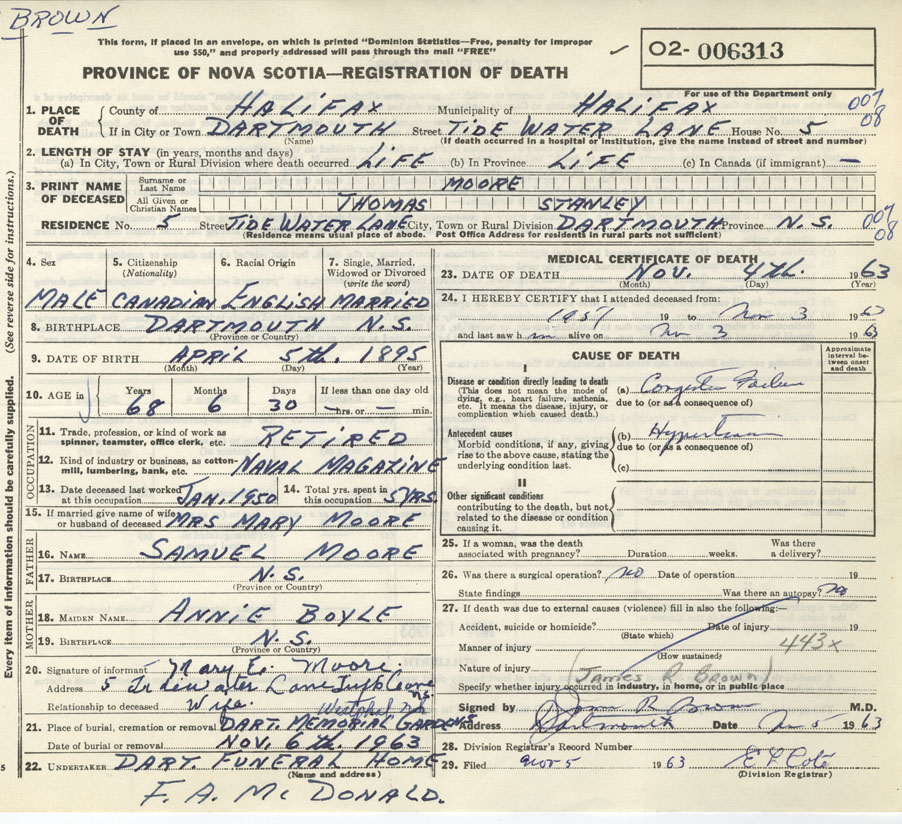 BROWN
This form, if placed in an envelope, on which is printed "Dominion Statistics—Free, penalty for improper
use $50," and properly addressed will pass through the mail "FREE"
02- 006313
PROVINCE OF NOVA SCOTIA—REGISTRATION OF DEATH
For use of the Department only
1. PLACE OF DEATH County of HALIFAX Municipality of HALIFAX 007
If in City or Town DARTMOUTH Street TIDE WATER LANE House No. 5 08
(Name) (If death occurred in a hospital or institution, give the name instead of street and number)
2. LENGTH OF STAY (in years, months and days)
(a) In City, Town or Rural Division where death occurred LIFE (b) In Province LIFE (c) In Canada (if immigrant) —
3. PRINT NAME OF DECEASED Surname or Last Name MOORE
All Given or Christian Names THOMAS STANLEY
RESIDENCE No. 5 Street TIDE WATER LANE City, Town or Rural Division DARTMOUTH Province N.S. 007 08
(Residence means usual place of abode. Post Office Address for residents in rural parts not sufficient)
4. Sex 5. Citizenship (Nationality) 6. Racial Origin 7. Single, Married, Widowed or Divorced (write the word)
MALE CANADIAN ENGLISH MARRIED
8. BIRTHPLACE DARTMOUTH N.S.
(Province or Country)
9. DATE OF BIRTH APRIL 5th. 1895
(Month) (Day) (Year)
10. AGE in Years Months Days If less than one day old
68 6 30 —hrs. or — min.
OCCUPATION
11. Trade, profession, or kind of work as spinner, teamster, office clerk, etc. RETIRED
12. Kind of industry or business, as cotton-mill, lumbering, bank, etc. NAVAL MAGAZINE
13. Date deceased last worked at this occupation JAN. 1950 14. Total yrs. spent in this occupation 5 YRS.
15. If married give name of wife or husband of deceased MRS MARY MOORE
FATHER
16. NAME SAMUEL MOORE
17. BIRTHPLACE N.S.
(Province or Country)
MOTHER
18. MAIDEN NAME ANNIE BOYLE
19. BIRTHPLACE N.S.
(Province or Country)
20. Signature of informant Mary E. Moore.
Address 5 Tidewater Lane Tufts Cove N.S.
Relationship to deceased Wife. Westphal NS
21. Place of burial, cremation or removal DART. MEMORIAL GARDENS
Date of burial or removal NOV. 6th. 1963
22. UNDERTAKER DART. FUNERAL HOME
(Name and address)
F. A. McDONALD.
(See reverse side for instructions.)
Every item of information should be carefully supplied.
5
MEDICAL CERTIFICATE OF DEATH
23. DATE OF DEATH NOV. 4th. 1963
(Month) (Day) (Year)
24. I HEREBY CERTIFY that I attended deceased from:
19 to Nov 3 1963
and last saw him alive on Nov 3 1963
CAUSE OF DEATH
Approximate interval between onset and death
I
Disease or condition directly leading to death (a) Congestive Failure
(This does not mean the mode of dying, e.g., heart failure, asthenia, etc. It means the disease, injury, or complication which caused death.)
due to (or as a consequence of)
Antecedent causes (b) Hypertension
Morbid conditions, if any, giving rise to the above cause, stating the underlying condition last.
due to (or as a consequence of)
(c)
II
Other significant conditions
contributing to the death, but not related to the disease or condition causing it.
25. If a woman, was the death associated with pregnancy? Duration weeks. Was there a delivery?
26. Was there a surgical operation? no Date of operation 19
State findings Was there an autopsy? no
27. If death was due to external causes (violence) fill in also the following:—
Accident, suicide or homicide? Date of injury 19
(State which)
Manner of injury 443x
(How sustained)
Nature of injury (James R Brown)
Specify whether injury occurred in industry, in home, or in public place
Signed by James R. Brown M.D.
Address Dartmouth Date Nov 5 1963
28. Division Registrar's Record Number
29. Filed Nov 5 1963 E L Cote
(Division Registrar)